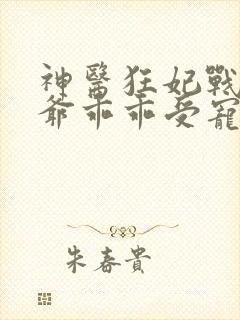 神醫狂妃戰
爺乖乖受寵
朱春貴